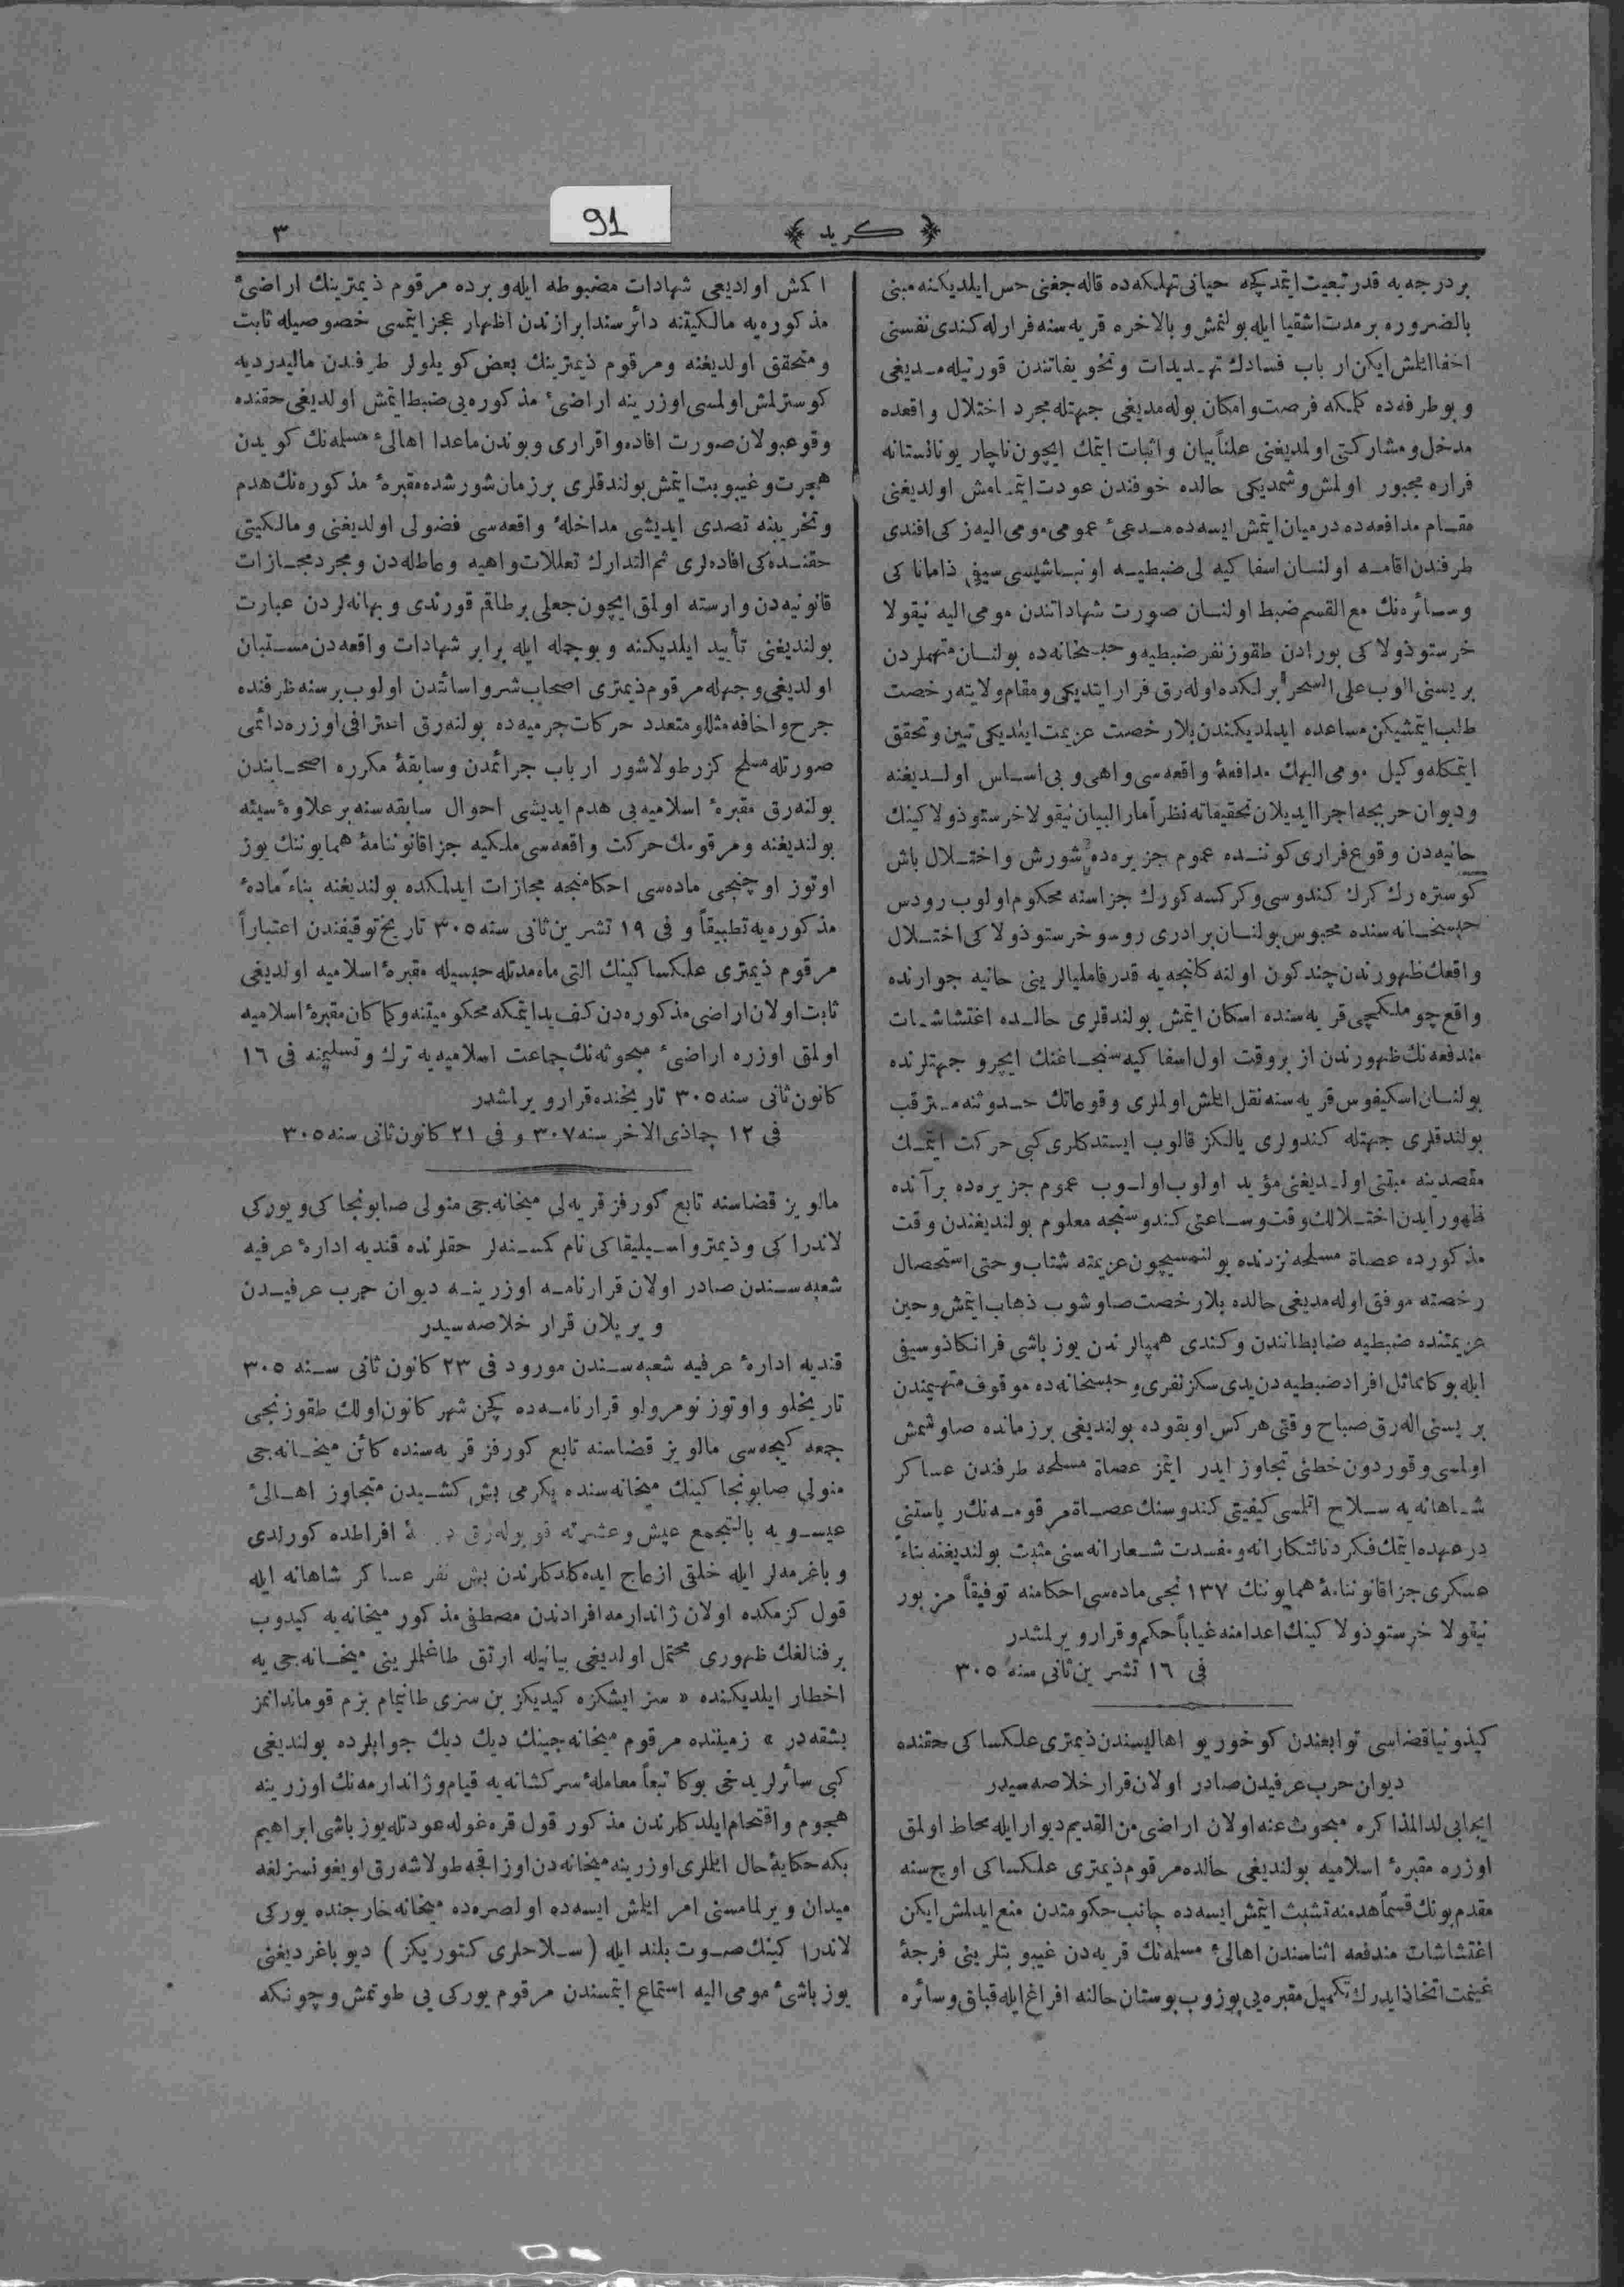 91
﴿ كريد ﴾
٣
بر درجه‌يه قدر تبعيت ايتمدكجه حياتى تهلكه‌ده قاله‌جغنى حس ايلديكنه مبنى
بالضروره بر مدت اشقيا ايله بولنمش و بالاخره قريه‌سنه فرار له كندى نفسنى
اخفا ايلمش ايكن ار باب فسادك تهديدات و تخويفاتندن قورتيله‌مديغى
و بو طرفه‌ده كلمكه فرصت و امكان بوله‌مديغى جهتله مجرد اختلال واقعده
مدخل و مشاركتى اولمديغنى علناً بيان و اثبات ايتمك ايچون ناچار يونانستانه
فراره مجبور اولمش و شمديكى حالده خوفندن عودت ايتمامش اولديغنى
مقام مدافعه‌ده درميان ايتمش ايسه‌ده مدعىء عمومى مومى اليه زكى افندى
طرفندن اقامه اولنان اسفاكيه لى ضبطيه اونباشيسى سيفى ذاماناكى
و سائره‌نك مع القسم ضبط اولنان صورت شهاداتندن مومى اليه نيقولا
خرستوذولاكى بورادن طقوز نفر ضبطيه و حبسخانه‌ده بولنان متهملردن
بريسنى الوب على السحر برلكده اوله‌رق فرار ايتديكى و مقام ولايته رخصت
طلب ايتمشيكن مساعده ايدلمديكندن بلا رخصت عزيمت ايتديكى تبين و تحقق
ايتمكله وكيل مومى اليهك مدافعهٔ واقعه‌سى واهى و بى اساس اولديغنه
و ديوان حربجه اجرا ايديلان تحقيقاته نظراً مار البيان نيقولا خرستوذولاكينك
حانيه‌دن وقوع فرارى كوننده عموم جزيره‌ده شورش و اختلال باش
كوستره‌رك كرك كندوسى و كركسه كورك جزاسنه محكوم اولوب رودس
حبسخانه‌سنده محبوس بولنان برادرى روسو خرستوذولاكى اختلال
واقعك ظهورندن چند كون اولنه كلنجه‌يه قدر فاميليالرينى حانيه جوارنده
واقع چوملكجى قريه‌سنده اسكان ايتمش بولندقلرى حالده اغتشاشات
مندفعه‌نك ظهورندن از بر وقت اول اسفاكيه سنجاغنك ايچرو جهتلرنده
بولنان اسكيفوس قريه‌سنه نقل ايتمش اولملرى وقوعاتك حدوثنه مترقب
بولندقلرى جهتله كندولرى يالكز قالوب ايستدكلرى كبى حركت ايتمك
مقصدينه مبتنى اولديغنى مؤيد اولوب اولوب عموم جزيره‌ده بر آنده
ظهور ايدن اختلالك وقت و ساعتى كندوسنجه معلوم بولنديغندن وقت
مذكورده عصاة مسلحه نزدنده بولنمسيچون عزيمته شتاب و حتى استحصال
رخصته موفق اوله‌مديغى حالده بلا رخصت صاوشوب ذهاب ايتمش و حين
عزيمتنده ضبطيه ضابطانندن و كندى همپالرندن يوز باشى فرانكاذو سيفى
ايله بوكا مماثل افراد ضبطيه‌دن يدى سكز نفرى و حبسخانه‌ده موقوف متهميندن
بريسنى اله‌رق صباح وقتى هركس اويقوده بولنديغى بر زمانده صاوشمش
اولمسى و قوردون خطنى تجاوز ايدر ايتمز عصاة مسلحه طرفندن عساكر
شاهانه‌يه سلاح اتلمسى كيفيتى كندوسنك عصاة مرقومه‌نك رياستنى
درعهده ايتمك فكر دنائتكارانه و مفسدت شعارانه سنى مثبت بولنديغنه بناءً
عسكرى جزا قانوننامهٔ همايوننك ١٣٧ نجى ماده‌سى احكامنه توفيقاً مزبور
نيقولا خرستوذولاكينك اعدامنه غياباً حكم و قرار ويرلمشدر
فى ١٦ تشرين ثانى سنه ٣٠٥
كيذونيا قضاسى توابعندن كوخوريو اهاليسندن ذيمترى علكساكى حقنده
ديوان حرب عرفيدن صادر اولان قرار خلاصه سيدر
ايجابى لدالمذاكره مبحوث عنه اولان اراضى من القديم ديوار ايله محاط اولمق
اوزره مقبرهٔ اسلاميه بولنديغى حالده مرقوم ذيمترى علكساكى اوچ سنه
مقدم بونك قسماً هدمنه تشبث ايتمش ايسه‌ده جانب حكومتدن منع ايدلمش ايكن
اغتشاشات مندفعه اثناسندن اهالىء مسلمه‌نك قريه‌دن غيبوبتلرينى فرجهٔ
غنيمت اتخاذ ايدرك تكميل مقبره‌يى بوزوب بوستان حالنه افراغ ايله قباق و سائره
اكمش اولديغى شهادات مضبوطه ايله و برده مرقوم ذيمترينك اراضىء
مذكوره‌يه مالكيتنه دائر سند ابرازندن اظهار عجز ايتمسى خصوصيله ثابت
و متحقق اولديغنه و مرقوم ذيمترينك بعض كويلولر طرفندن ماليدرديه
كوسترلمش اولمسى اوزرينه اراضىء مذكوره‌يى ضبط ايتمش اولديغى حقنده
وقوعبولان صورت افاده و اقرارى و بوندن ماعدا اهالىء مسلمه‌نك كويدن
هجرت و غيبوبت ايتمش بولندقلرى بر زمان شورشده مقبرهٔ مذكوره‌نك هدم
و تخريبنه تصدى ايديشى مداخلهٔ واقعه‌سى فضولى اولديغنى و مالكيتى
حقنده‌كى افاده‌لرى ثم التدارك تعللات واهيه و عاطله‌دن و مجرد مجازات
قانونيه‌دن وارسته اولمق ايچون جعلى بر طاقم قورندى و بهانه‌لردن عبارت
بولنديغنى تأييد ايلديكنه و بوجمله ايله برابر شهادات واقعه‌دن مستبان
اولديغى وجهله مرقوم ذيمترى اصحاب شر و اسائتدن اولوب بر سنه ظرفنده
جرح و اخافه مثللو متعدد حركات جرميه‌ده بولنه‌رق اعترافى اوزره دائمى
صورتله مسلح كزر طولاشور ارباب جرائمدن و سابقهٔ مكرره اصحابندن
بولنه‌رق مقبرهٔ اسلاميه‌يى هدم ايديشى احوال سابقه سنه بر علاوهٔ سيئه
بولنديغنه و مرقومك حركت واقعه‌سى ملكيه جزا قانوننامهٔ همايوننك يوز
اوتوز اوچنجى ماده‌سى احكامنجه مجازات ايدلمكده بولنديغنه بناءً مادهٔ
مذكوره‌يه تطبيقاً و فى ١٩ تشرين ثانى سنه ٣٠٥ تاريخ توقيفندن اعتباراً
مرقوم ذيمترى علكساكينك التى ماه مدتله حبسيله مقبرهٔ اسلاميه اولديغى
ثابت اولان اراضى مذكوره‌دن كف يد ايتمكه محكوميتنه و كما كان مقبرهٔ اسلاميه
اولمق اوزره اراضىء مبحوثه‌نك جماعت اسلاميه‌يه ترك و تسليمنه فى ١٦
كانون ثانى سنه ٣٠٥ تاريخنده قرار ويرلمشدر
فى ١٢ جماذى الاخر سنه ٣٠٧ و فى ٢١ كانون ثانى سنه ٣٠٥
مالويز قضاسنه تابع كورفز قريه‌لى ميخانه‌جى منولى صابونجاكى و يوركى
لاندراكى و ذيمترو اسيليقاكى نام كمسنه‌لر حقلرنده قنديه ادارهٔ عرفيه
شعبه سندن صادر اولان قرارنامه اوزرينه ديوان حرب عرفيدن
ويريلان قرار خلاصه سيدر
قنديه ادارهٔ عرفيه شعبه‌سندن مورود فى ٢٣ كانون ثانى سنه ٣٠٥
تاريخلو و اوتوز نومرولو قرارنامه‌ده كچن شهر كانون اولك طقوزنجى
جمعه كيجه‌سى مالويز قضاسنه تابع كورفز قريه‌سنده كائن ميخانه‌جى
منولى صابونجاكينك ميخانه‌سنده يكرمى بش كشيدن متجاوز اهالىء
عيسويه بالتجمع عيش و عشرته قويوله‌رق افراطده كورلدى
و باغرمه‌لر ايله خلقى ازعاج ايده‌كلدكلرندن بش نفر عساكر شاهانه ايله
قول كزمكده اولان ژاندارمه افرادندن مصطفى مذكور ميخانه‌يه كيدوب
بر فنالغك ظهورى محتمل اولديغى بيانيله ارتق طاغلملرينى ميخانه‌جى يه
اخطار ايلديكنده « سز ايشكزه كيديكز بن سزى طانيمام بزم قوماندانمز
بشقه‌در » زميننده مرقوم ميخانه‌جينك ديك ديك جوابلرده بولنديغى
كبى سائرلريدخى بوكا تبعاً معاملهٔ سركشانه‌يه قيام و ژاندارمه‌نك اوزرينه
هجوم و اقتحام ايلدكلرندن مذكور قول قره‌غوله عودتله يوز باشى ابراهيم
بكه حكايهٔ حال ايتملرى اوزرينه ميخانه‌دن اوزاقجه طولاشه‌رق اويغونسزلغه
ميدان ويرلمامسنى امر ايتمش ايسه‌ده اولصره‌ده ميخانه خارجنده يوركى
لاندراكينك صوت بلند ايله ( سلاحلرى كتوريكز ) ديو باغرديغنى
يوز باشىء مومى اليه استماع ايتمسندن مرقوم يوركى يى طوتمش و چونكه